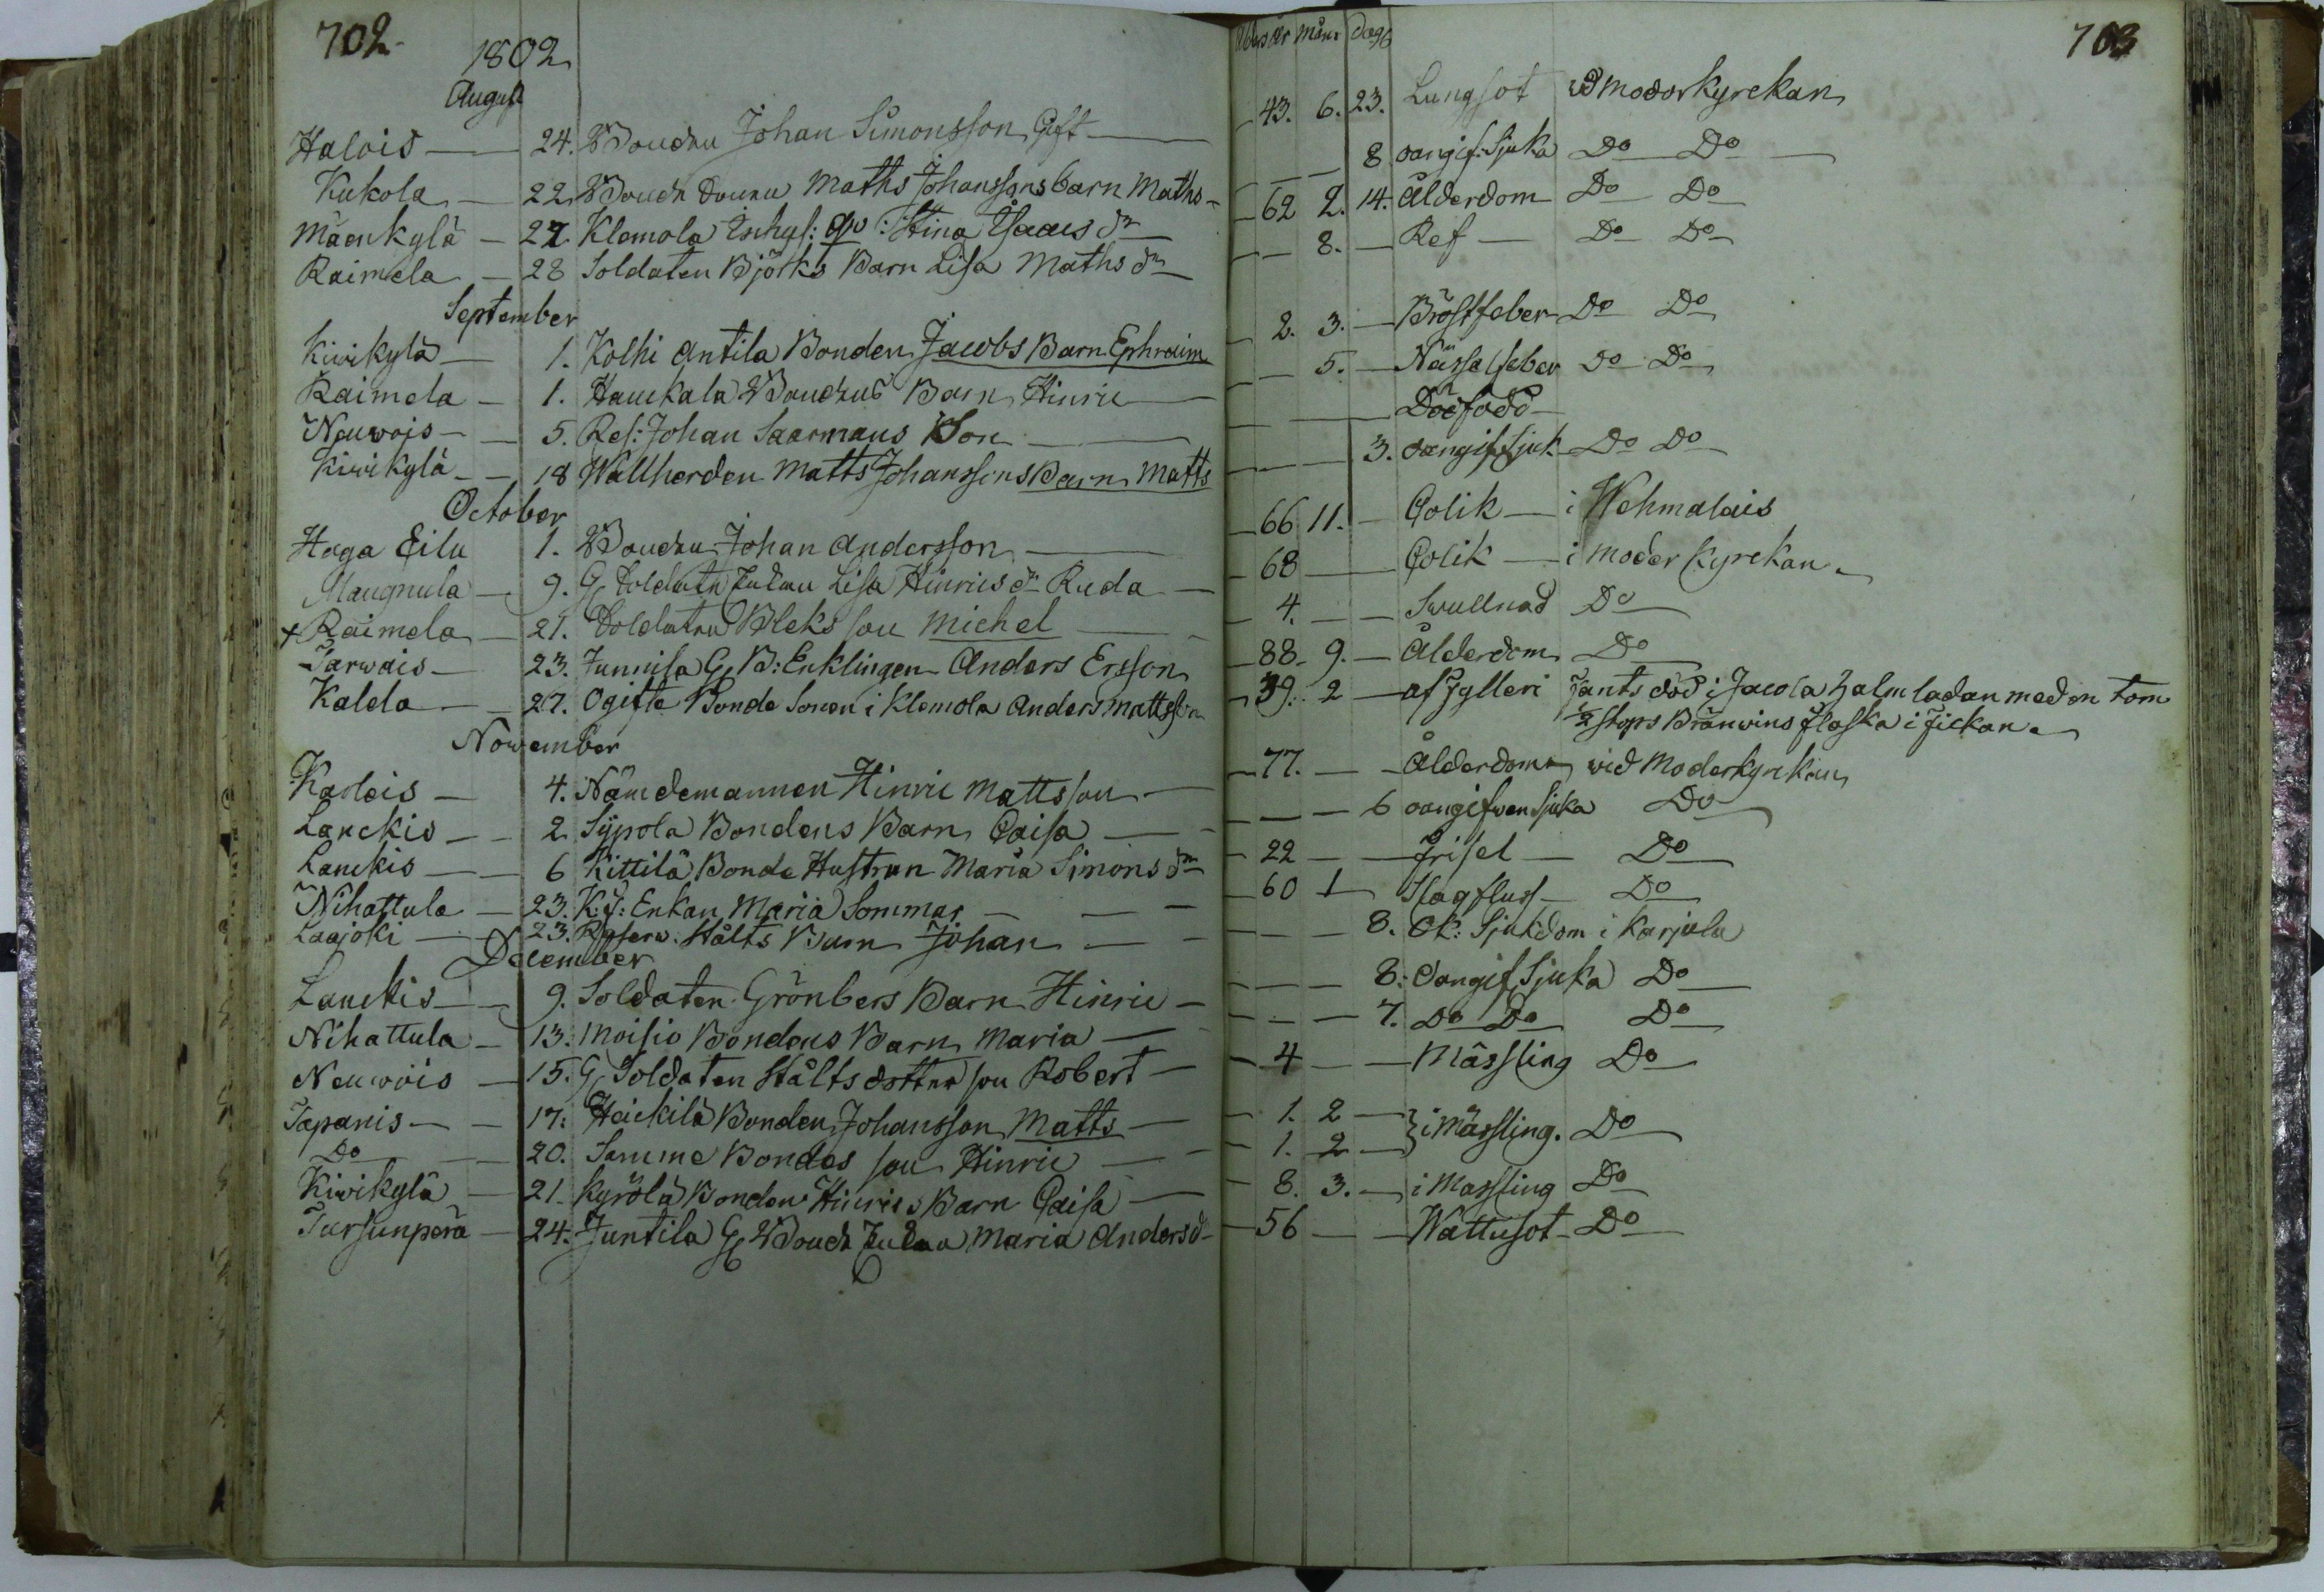 702
1802
August
Halois — 24. Bonden Johan Simonsson Gift —
Kukola — 22 Bonde Sonens Maths Johanssons barn Maths —
Mäenkylä — 27. Klemola Inhys: Qv: Stina Isaacs dr
Raimela — 28 Soldaten Björks Barn Lisa Maths dr
September
Kiwikylä — 1. Kolhi Antila Bonden Jacobs Barn Ephraim
Raimela — 1. Haukala Bondens Barn Hinric —
Neuwois — 5. Res: Johan Saarmans Son —
Kiwikylä — 18 Wallherden Matts Johanssons Barn Matts
October
Haga Eilu 1. Bonden Johan Andersson —
Maugnula — 9. G. Soldats Enkan Lisa Hinrics dr Ruda —
+ Raimela — 21. Soldatens Bleks son Michel —
Sarwais — 23. Junnila G. B: Enklingen Anders Ersson
Kalela — 27. Ogifte Bonde Sonen i Klemola Anders Mattsson
November
Karlois — 4. Nämdemannen Hinric Mattsson —
Lauckis — 2 Sÿpola Bondens Barn Caisa —
Lauckis — 6 Kittilä Bonde Hustrun Maria Simons dr
Nihattula — 23. K: J: Enkan Maria Sommar —
Laajoki — 23. Reserv. Stålts Barn Johan —
December
Lauckis — 9. Soldaten Grönbers Barn Hinric —
Nihattula — 13. Moisio Bondens Barn Maria —
Neuwois — 15. G. Soldaten Stålts dotter son Robert —
Tapanis — 17. Heickilä Bonden Johansson Matts —
Do — 20. Samme Bondes son Hinric —
Kiwikylä — 21. Kyrölä Bonden Hinrics Barn Caisa —
Tursunperä — 24. Juntila G. Bonde Enkan Maria Anders dr
703
år Mån: Dag:
43. 6. 23. Lungsot wid Moderkyrckan
8 oangif: Sjuka Do Do —
62 2. 14. Ålderdom Do Do
8. — Ref — Do Do
2. 3. — Bröstfeber Do Do
5. — Nässelfeber Do Do
Dödfödd —
3. oangif. Sjuk. Do Do
66 11. — Colik — i Wehmalais
68 — Colik — i Moder Kyrckan.
4. — Swullnad Do
88. 9. — Ålderdom Do
39. 2 — af Fylleri fants död i Jacola halmladan med en tom
½ stops Bränwins flaska i fickan.
77. — Ålderdom wid Moderkyrckan
6 oangifwen Sjuka Do
22 — frisel — Do
60 1 Slagfluss — Do
8. Ok: Sjukdom i Karjala
8. Oangif. Sjuka Do
7. Do Do Do
4 — Mässling Do
1. 2 —
1. 2 — } i Mässling. Do
8. 3. — i Massling Do
56 — Wattusot — Do